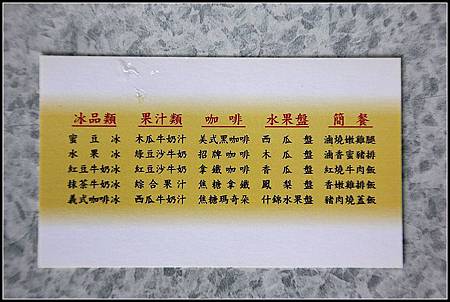 冰品類 果汁類 咖啡 水果盤 簡餐
蜜豆冰 木瓜牛奶汁 美式黑咖啡 西瓜盤 滷燒嫩雞腿
水果冰 綠豆沙牛奶 招牌咖啡 木瓜盤 滷香蜜豬排
紅豆牛奶冰 紅豆沙牛奶 拿鐵咖啡 香瓜盤 紅燒牛肉飯
抹茶牛奶冰 綜合果汁 焦糖拿鐵 鳳梨盤 香嫩雞排飯
義式咖啡冰 西瓜牛奶汁 焦糖瑪奇朵 什錦水果盤 豬肉燒蓋飯